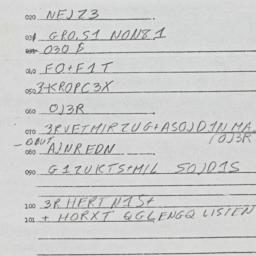 020 NEJZ3
030 GRO,S1 NONZ1
030 &
040 FO+F1T
050 3+KROPC3X
060 OJ3R
070 3RVETMIRZUG+ASOJD1N MA
080 AJNREDN
090 G1ZUKTS+MIL SOJD1S
100 3R HERT N1S+
101 + HORXT QGLENGQ LISTEN